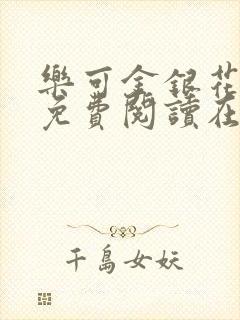 樂可金銀花
免費閱讀在
千島女妖